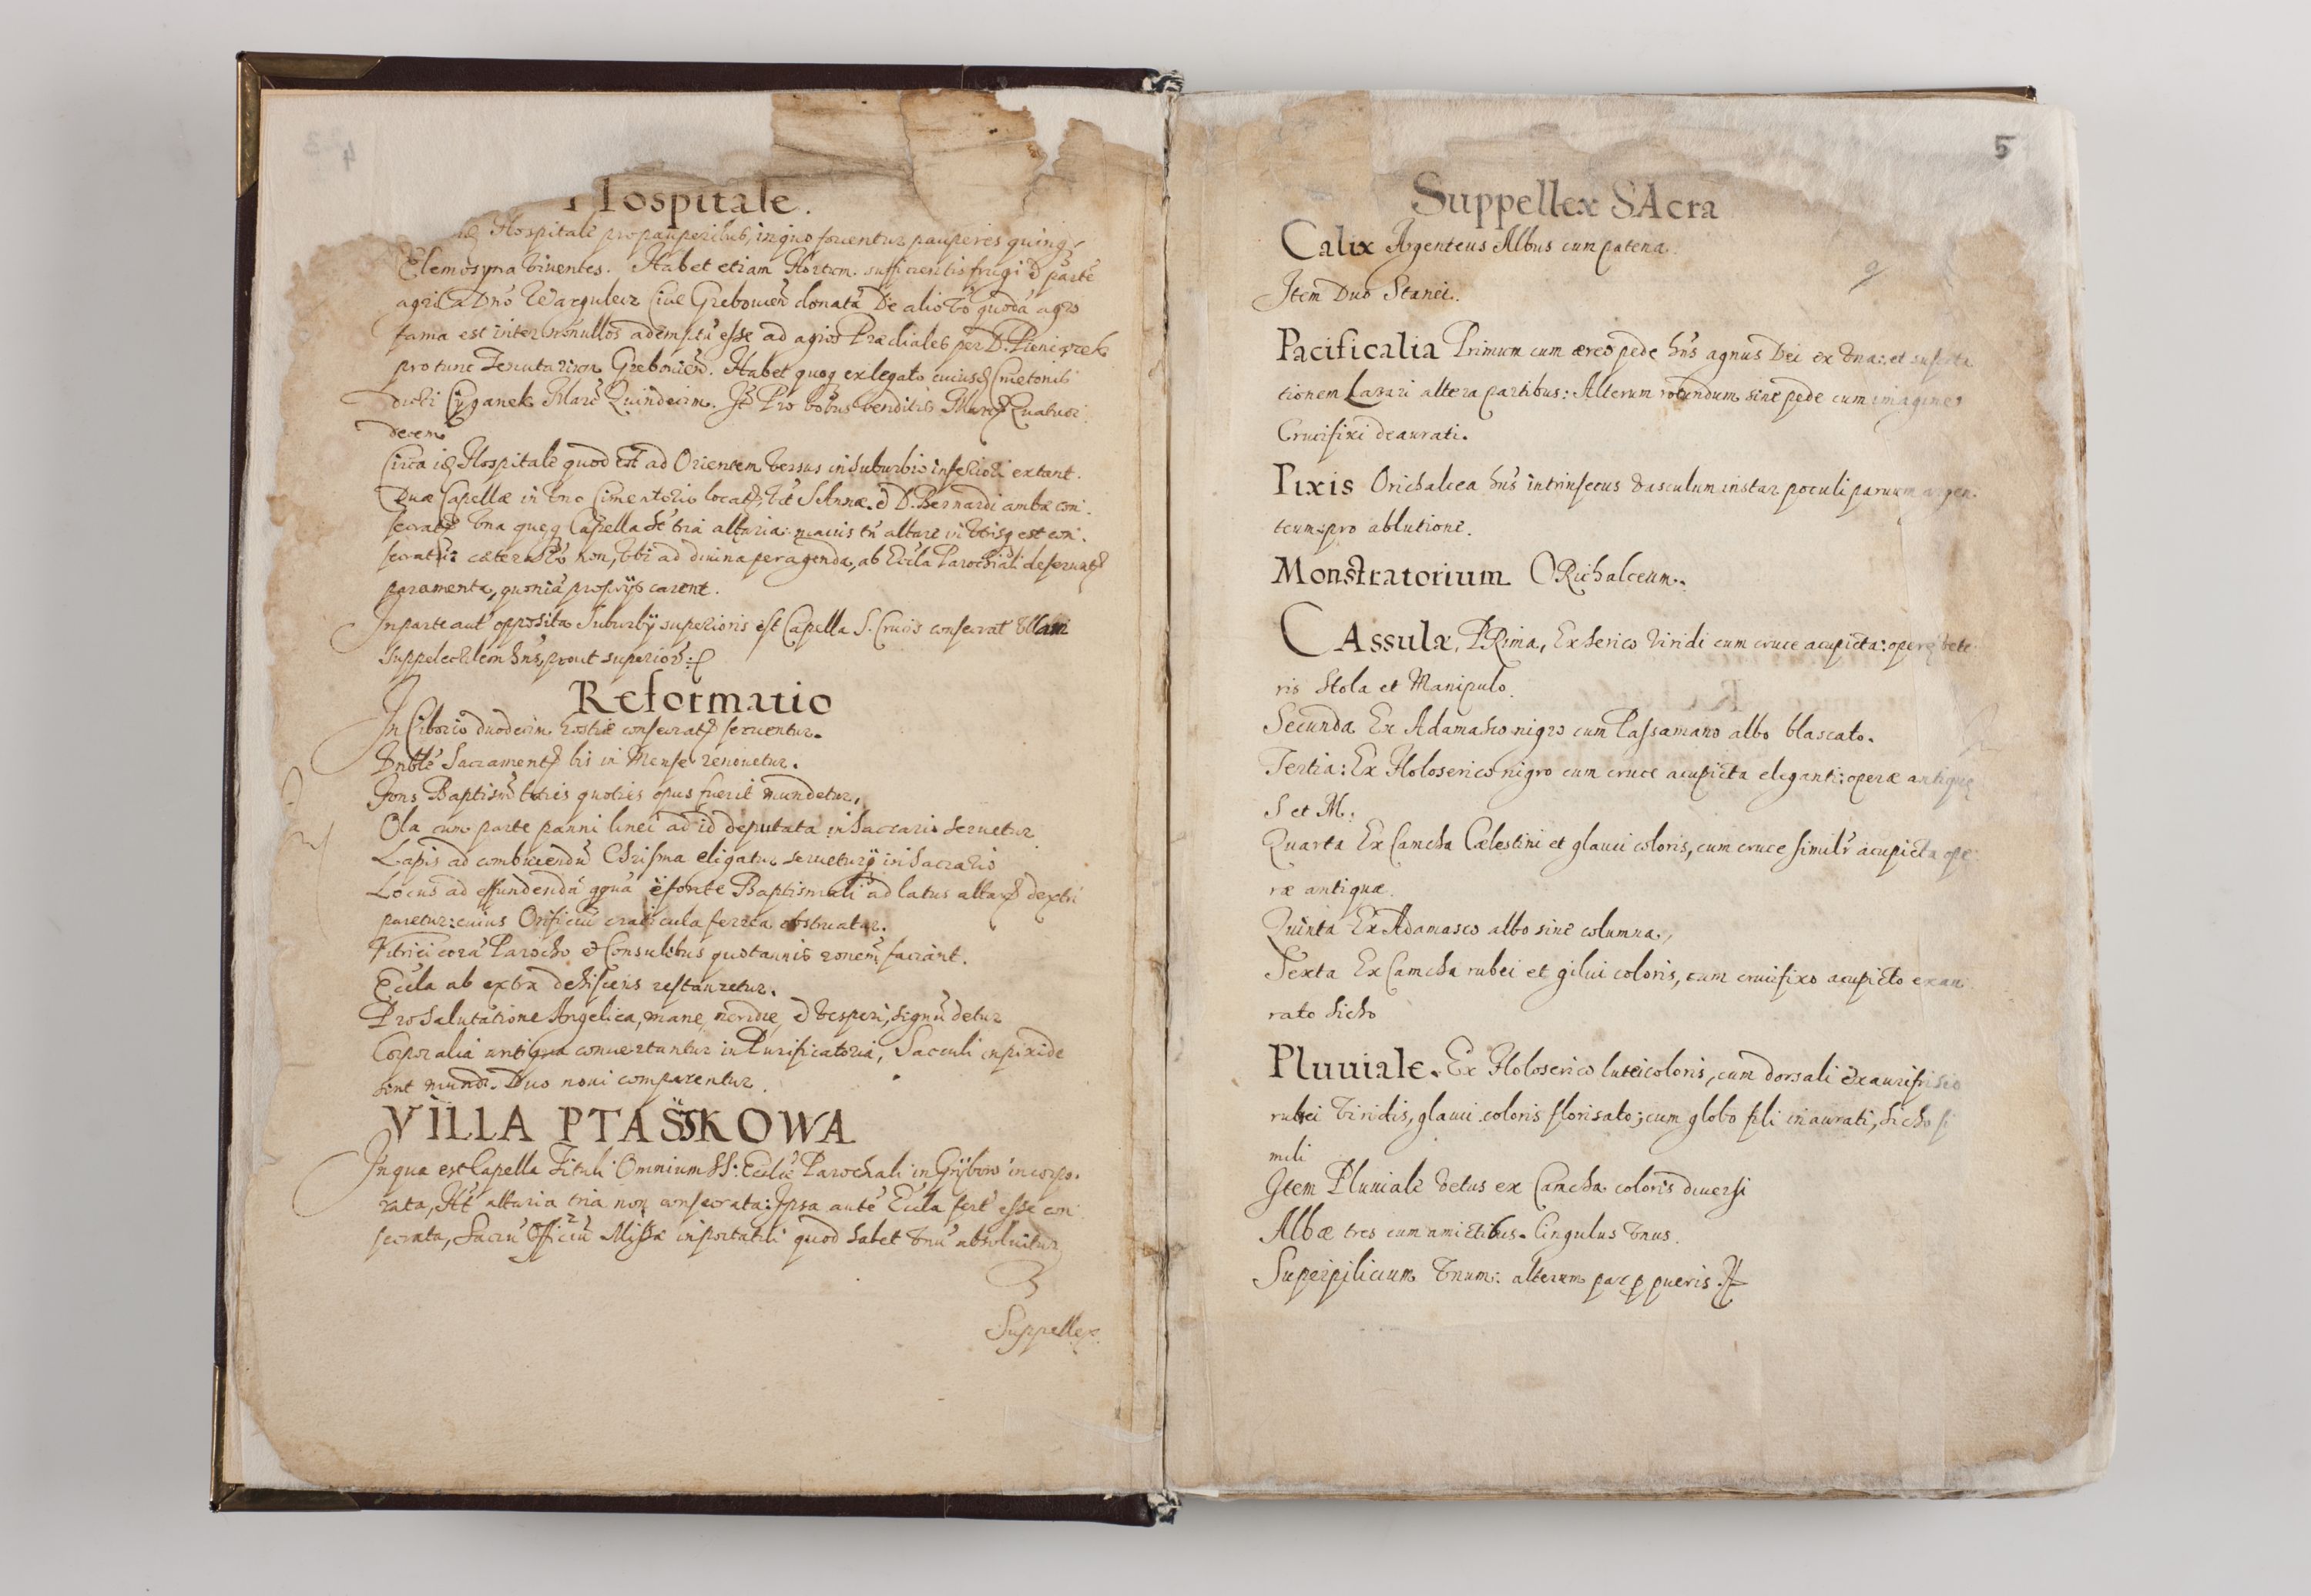 Hospitale.
Hospitale pro pauperibus, in quo fouentur pauperes quinq
Elemosyna viuentes. Habet etiam Hortum sufficientis frugi
agri a Dno Wargulecz Ciue Grebouien donata De alio vo quoda agro
fama est inter nonnullos ademptu esse ad agros Prædiales per D. Pieniązek
pro tunc Tenutarium Grebouien. Habet quoq ex legato cuiusd Cmetonis
dicti Cyganek Marc Quindecim. It Pro bobus venditis Marc Quatuor
decem
Circa id Hospitale quod est ad Orientem versus in suburbio inferiori extant.
Duæ Capellæ in vno Cimenterio locat, vt S Annæ. & D. Bernardi ambæ con
secrat vna queq Capella het tria altaria: maius tn altare in vtrisq est con
secratu: cætera vo non, vbi ad diuina peragenda, ab Eccla Parochiali deferunt
paramenta, quonia proprijs carent.
In parte aut opposita Suburbij superioris est Capella S. Crucis consecrat
suppelectilem hns, prout superior:
Reformatio
In Ciborio duodecim hostiæ consecrat seruentur.
Vnble Sacrament bis in Mense renouetur.
Fons Baptism toties quoties opus fuerit mundetur,
Ola cum parte panni linei ad id deputata in Sacrario seruetur
Lapis ad comburendu Chrisma eligatur serueturq in Sacrario
Locus ad effundendu aqua e fonte Baptismali ad latus altar dextri
paretur: cuius Orificiu craticula ferrea obstruatur.
Vitrici cora Parocho & Consulibus quotannis ronem faciant.
Eccla ab extra dehiscens restauretur.
Pro Salutatione Angelica, mane, meridie, & vesperi, signu detur
Corporalia antiqua conuertantur in Purificatoria, Sacculi in pixide
sint mundi. Duo noui comparentur.
VILLA PTASSKOWA
In qua est Capella Tituli Omnium SS: Ecclie Parochali in Grÿbow incorpo
rata, Ht altaria tria non consecrata: Ipsa aute Eccla fert esse con
secrata, Sacru Officiu Missæ in portatili quod habet vnu absoluitur
Suppellex
5
Suppellex SAcra
Calix Argenteus Albus cum patena.
Item Duo Stanei.
Pacificalia Primum cum æreo pede hns agnus Dei ex vna: et
tionem Lazari altera partibus: Alterum rotundum sine pede cum imagine
Crucifixi deaurati.
Pixis Orichalcea hns intrinsecus vasculum instar poculi paruum argen
teum: pro ablutione.
Monstratorium ORichalceum.
CAssulæ, PRima, Ex serico viridi cum cruce acupicta: operę vete
ris Stola et Manipulo.
Secunda Ex Adamasco nigro cum Passamano albo blascato.
Tertia: Ex Holoserico nigro cum cruce acupicta eleganti: operæ antiquę
S et M:
Quarta Ex Camcha Cælestini et glauci coloris, cum cruce similr acupicta ope
ræ antiquæ.
Quinta Ex Adamasco albo sine columna,
Sexta Ex Camcha rubei et gilui coloris, cum crucifixo acupicto exau
rato sicho
Pluuiale. Ex Holoserico lutei coloris, cum dorsali ex aurifrisio
rubei viridis, glauci coloris florisato; cum globo fili inaurati, sicho si
mili
Item Pluuiale vetus ex Camcha coloris diuersi
Albæ tres cum amictibus. Cingulus vnus.
Superpilicium vnum: alterum par p pueris.